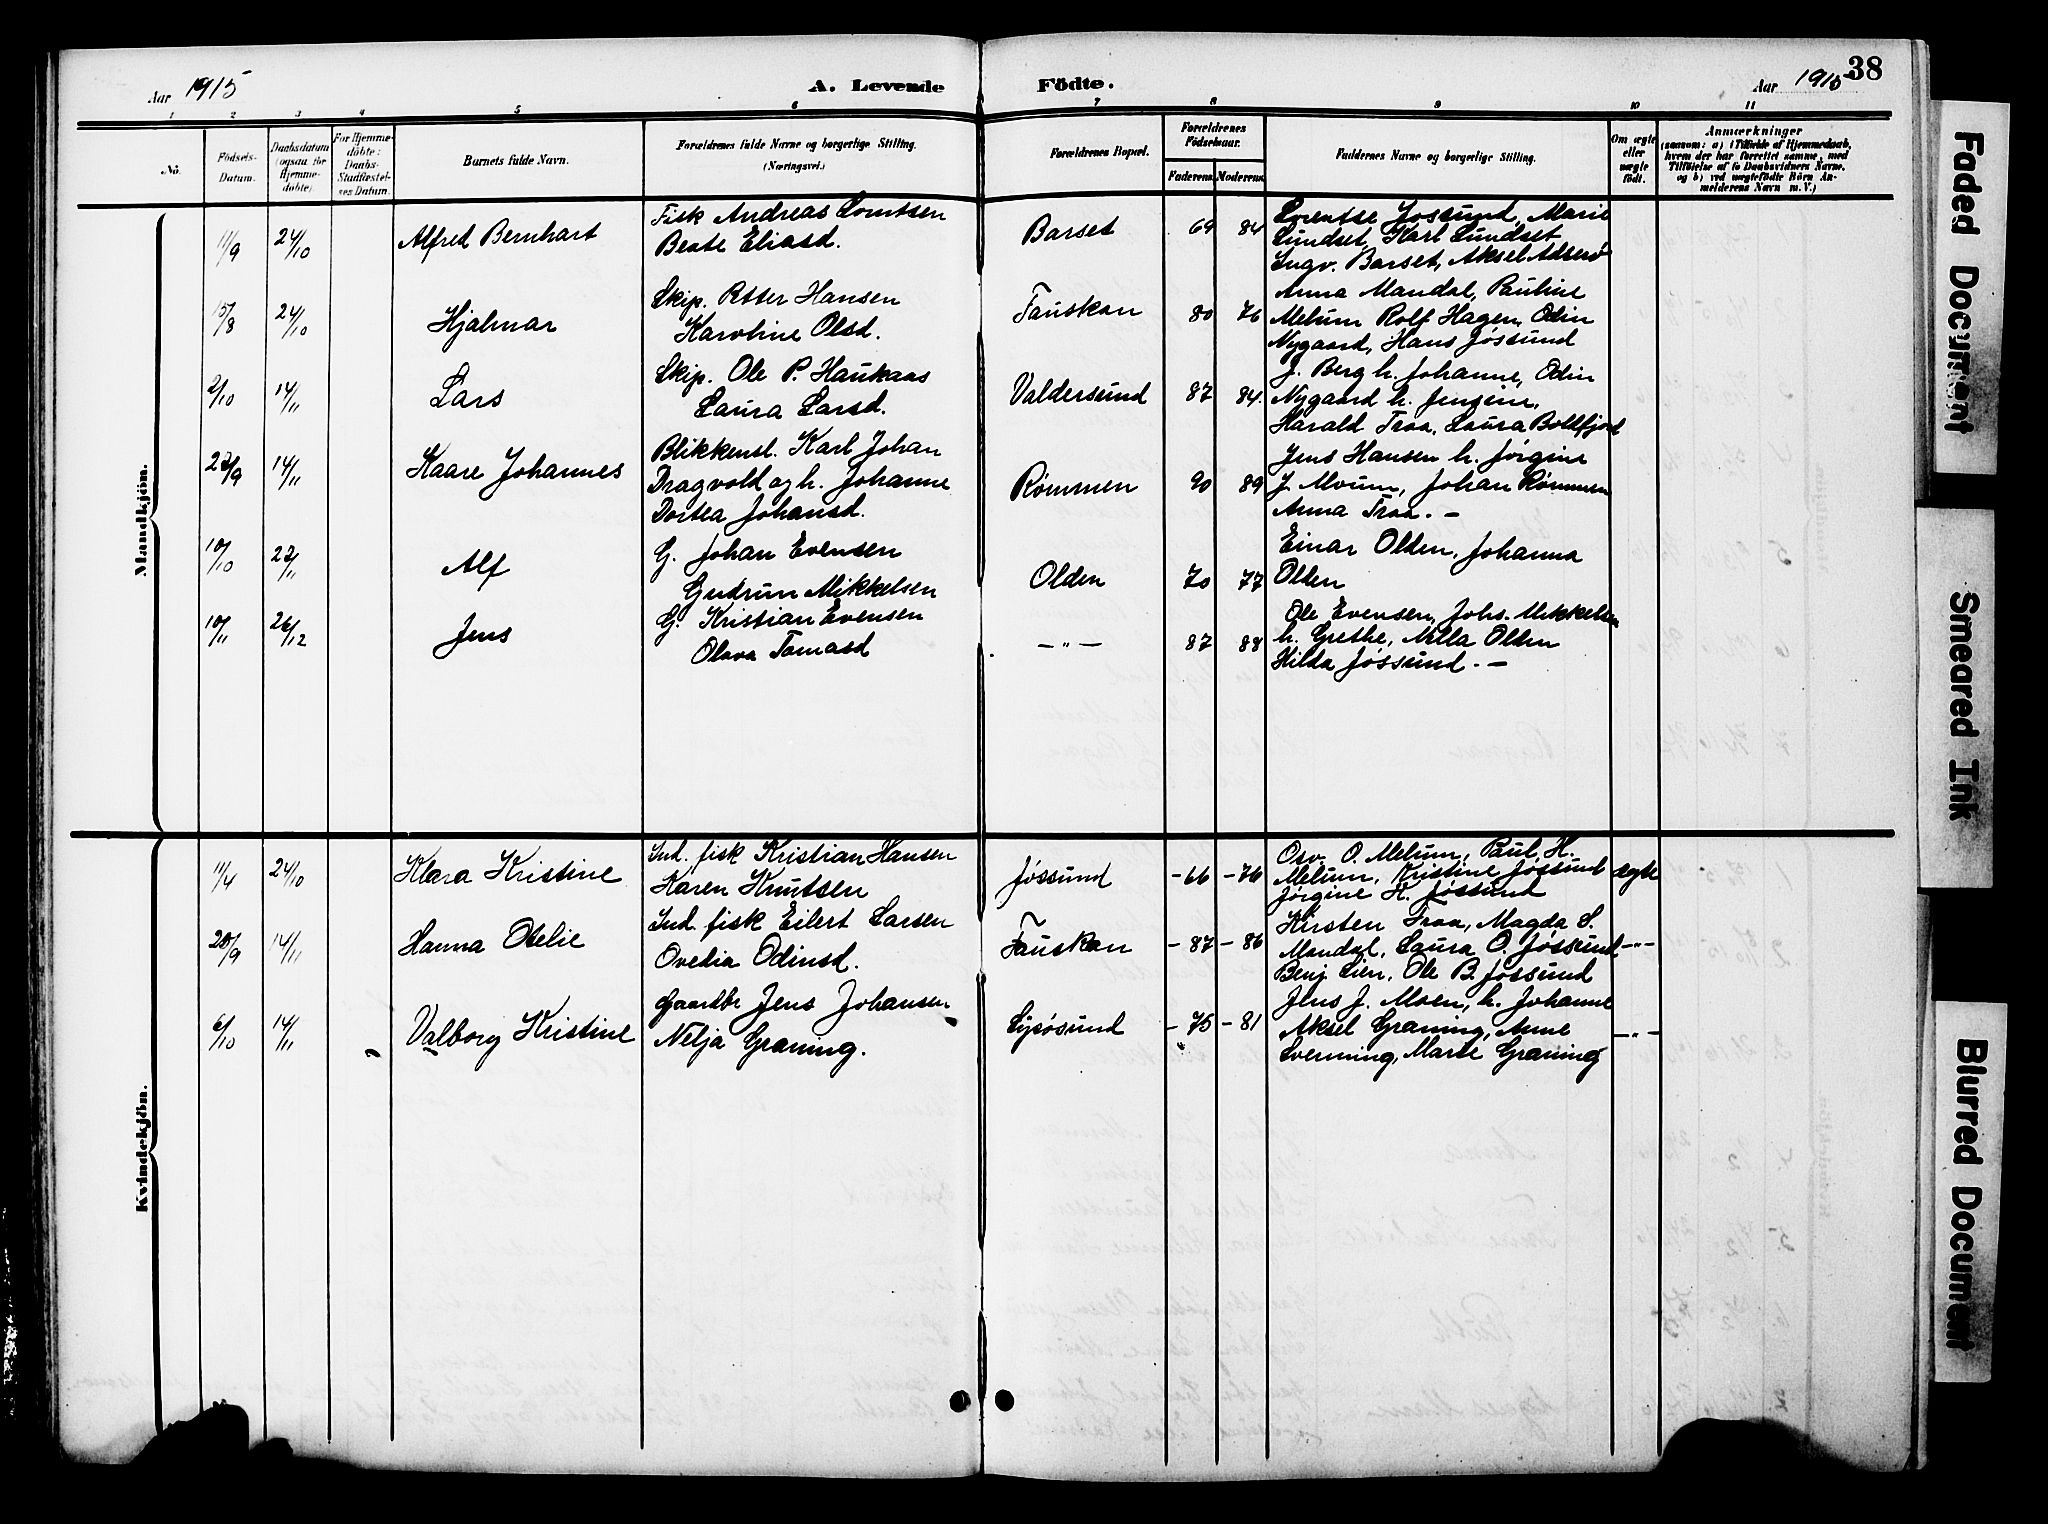 Aar 1915
A. Levende
Födte.
Aar 1915
38
1 2 3 4 5 6 7 8 9 10 11
No.
Födsels-Datum.
Daabsdatum (ogsaa for Hjemme-döbte).
For Hjemme-döbte: Daabs-Stadfæstel-ses Datum.
Barnets fulde Navn.
Forældrenes fulde Navne og borgerlige Stilling. (Næringsvei.)
Forældrenes Bopæl.
Forældrenes Födselsaar.
Faderens. Moderens.
Faddernes Navne og borgerlige Stilling.
Om ægte eller uægte födt.
Anmærkninger
(saasom: a) i Tilfælde af Hjemmedaab,
hvem der har forrettet samme, med
Tilföielse af to Daabsvidners Navne,
og b) ved uægtefödte Börn An-
melderens Navn m. V.)
Mandkjön.
11/9 24/10 Alfred Bernhart
Fisk Andreas Lorntsen
Beate Eliasd.
Barset 69 84
Lorentse Jossund, Marie
Lundset, Karl Lundset
Ingv. Barset, Aksel
15/8 24/10 Hjalmar
Skip. Petter Hansen
Karoline Olsd.
Fauskan 80 76
Anna Mandal, Pauline
Melum Rolf Hagen, Odin
Nygaard, Hans Jøssund
2/10 14/11 Lars
Skip. Ole P. Haukaas
Laura Larsd.
Valdersund 87 84.
J. Berg h. Johanne, Odin
Nygaard h. Jensine,
Harald Traa, Laura Bottfjord
14/11 Kaare Johannes
Blikkensl. Karl Johan
Dragvold og h. Johanne
Dortea Johansd.
Rømmen 90 89
Jens Hansen h. Jørgine
J. Moum, Johan Rømmen
Anna Traa. –
10/10 Alf
G. Johan Evensen
Gudrun Mikkelsen
Olden 70 77
Einar Olden, Johanna
Olden
10/11 26/12 Jens
G. Kristian Evensen
Olava Tomasd
– " – 87 88
Ole Evensen, Johs. Mikkelsen
h. Grethe, Nilla Olden
Hilda Jøssund. –
Kvindekjön.
11/4 24/10 Klara Kristine
Ind. fisk Kristian Hansen
Karen Knutsen
Jøssund – 66 – 76
Osv. O. Melum, Paul H.
Melum, Kristine Jøssund
Jørgine H. Jøssund
ægte
20/9 14/11 Hanna Otelie
Ind. fisk Eilert Larsen
Ovedia Odinsd.
Fauskan – 87 – 86
Kirsten Traa, Magda S.
Mandal, Laura O. Jøssund
Benj. Lien, Ole B. Jøssund
– " –
6/10 14/11 Valborg Kristine
Gaardbr Jens Johansen
Nelja Graning.
Lysøsund – 75 – 81
Jens J. Moen, h. Johanne
Aksel Graning, Anne
Sverming, Marte Graning
– " –
Faded Document
Smeared Ink
Blurred Document